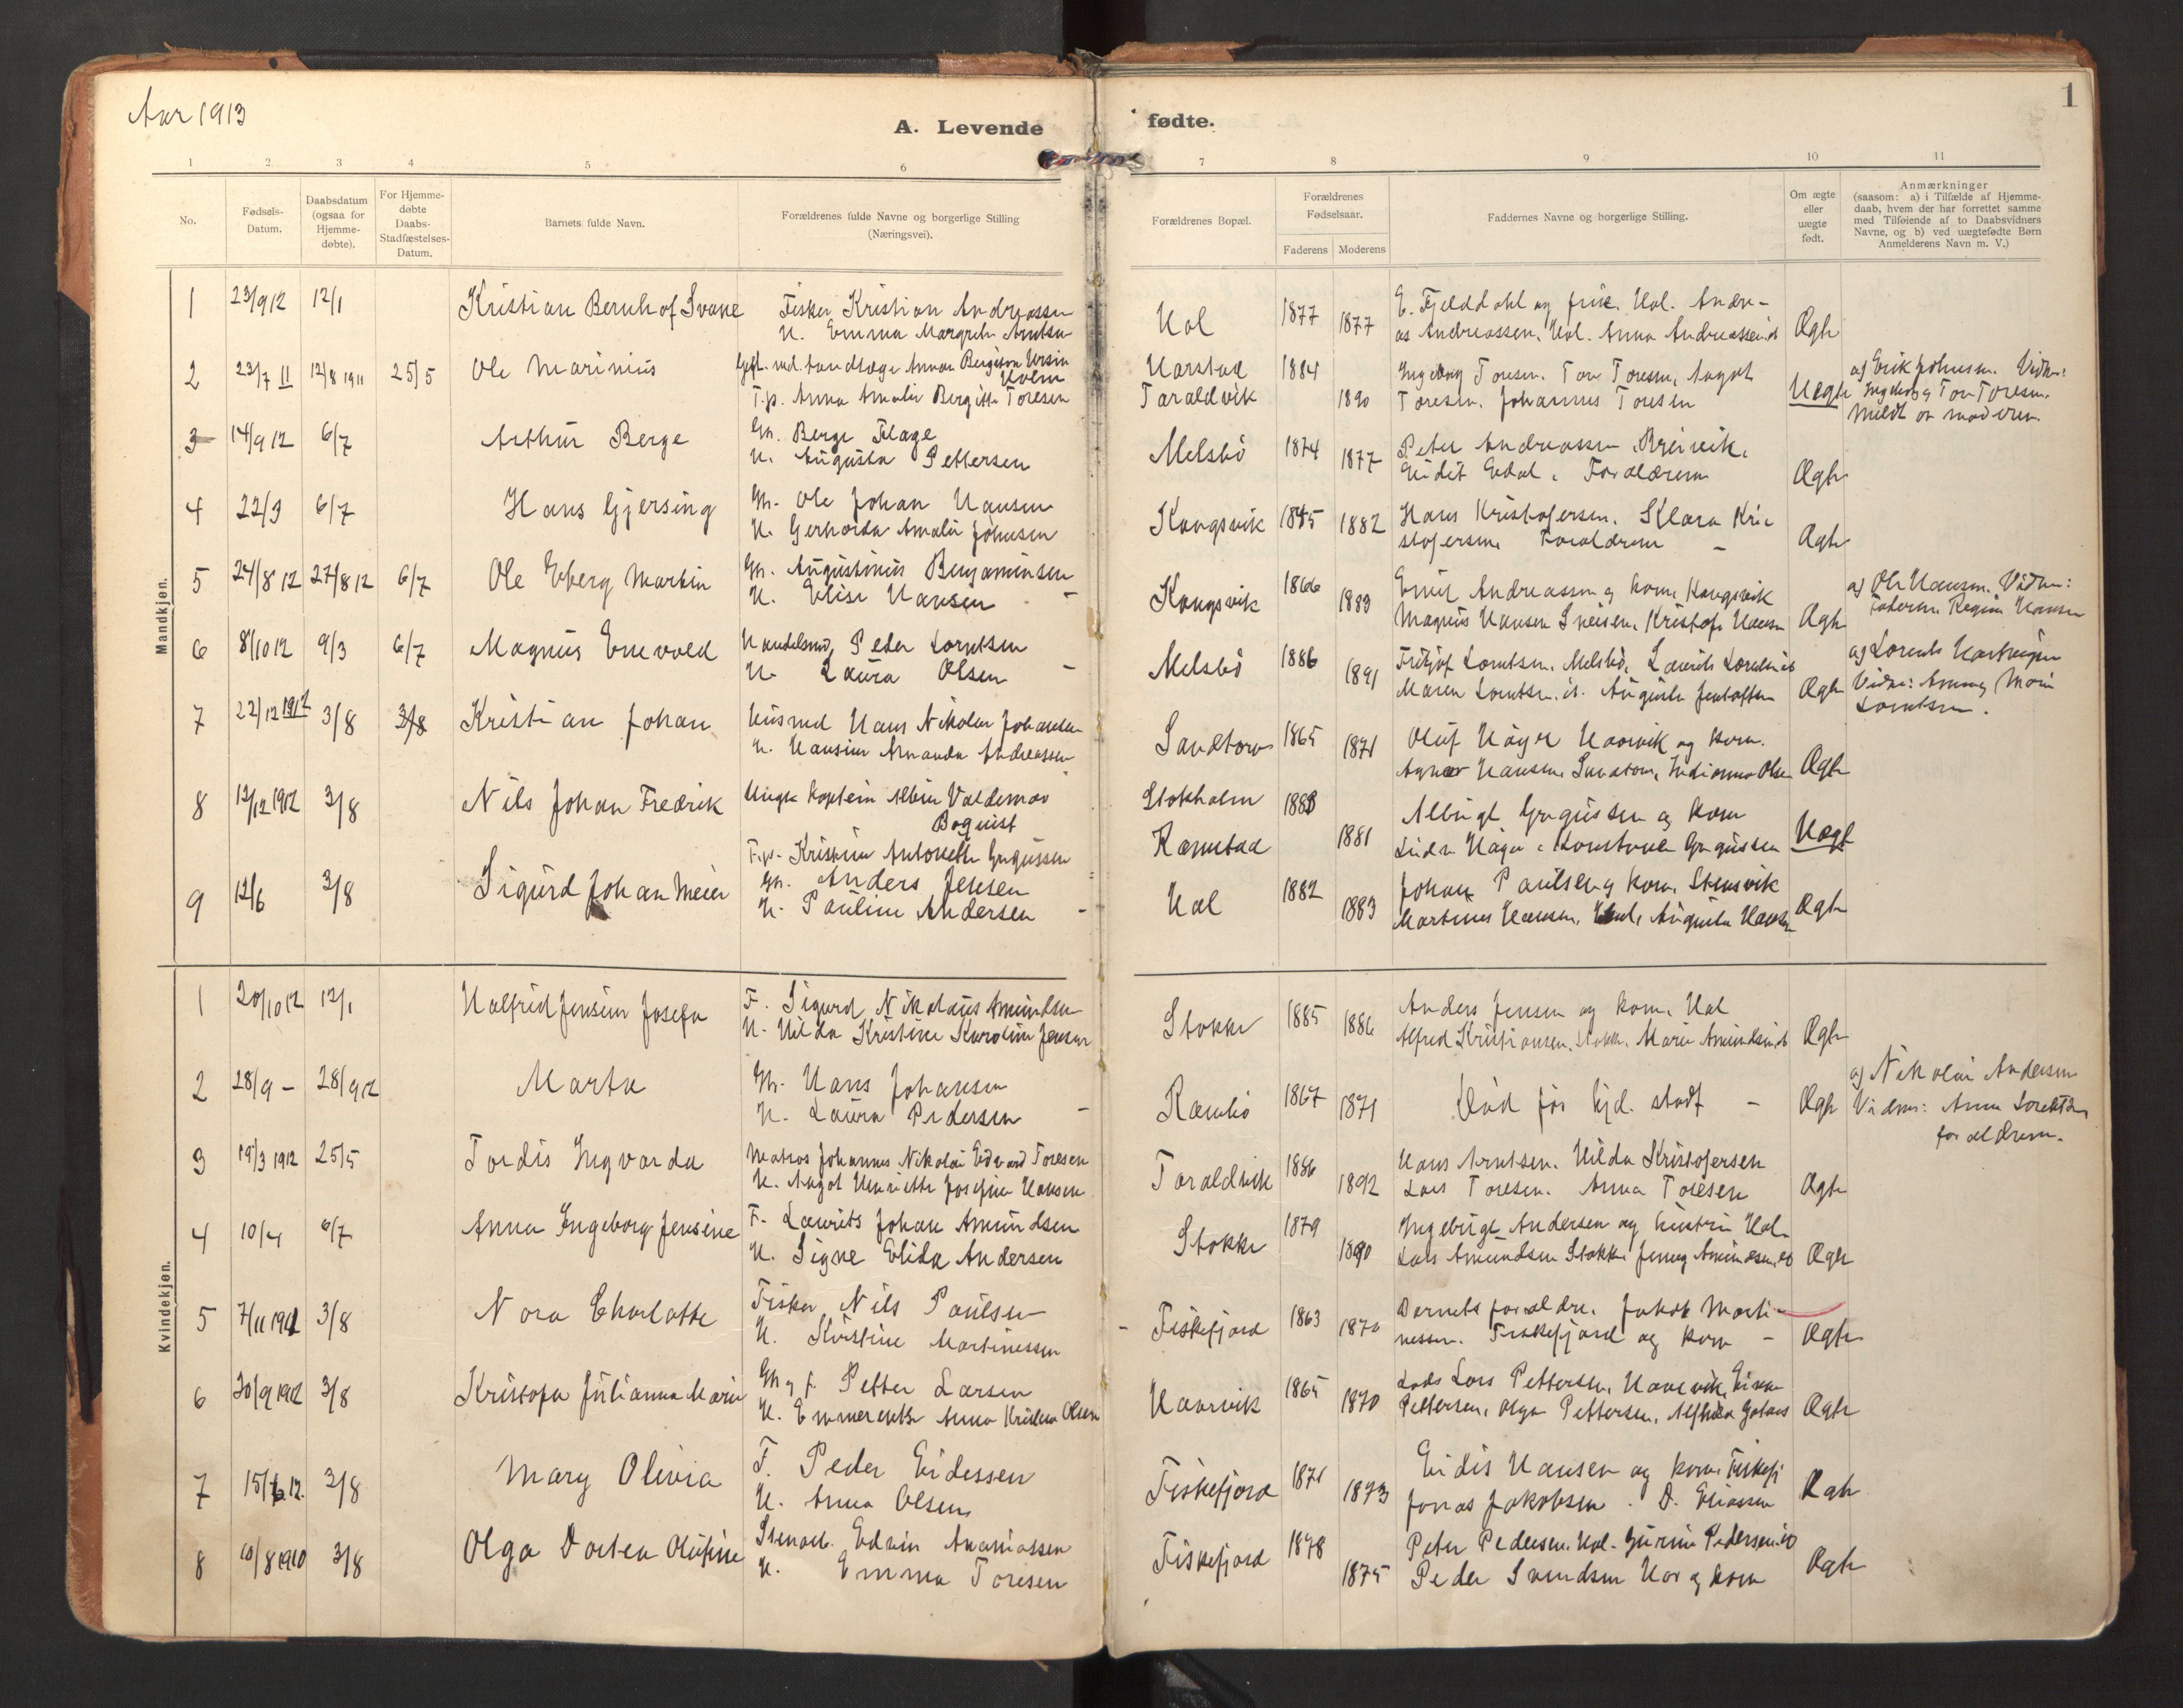 Aar 1913
A. Levende fødte.
1
1 2 3 4 5 6 7 8 9 10 11
No.
Fødsels-Datum.
Daabsdatum (ogsaa for Hjemme-døbte).
For Hjemme-døbte Daabs-Stadfæstelses-Datum.
Barnets fulde Navn.
Forældrenes fulde Navne og borgerlige Stilling (Næringsvei).
Forældrenes Bopæl.
Forældrenes Fødselsaar.
Faderens Moderens
Faddernes Navne og borgerlige Stilling.
Om ægte eller uægte født.
Anmærkninger
(saasom: a) i Tilfælde af Hjemme-
daab, hvem der har forrettet samme
med Tilføiende af to Daabsvidners
Navne, og b) ved uægtefødte Børn
Anmelderens Navn m. V.)
Mandkjøn.
1 23/9 12 12/1 Kristian Bernhof Svane Fisker Kristian Andreassen
H. Emma Margrete Arntsen
Hol 1877 1877 E. Fjelddahl og frue. Hol. Andre-
as Andreassen, Hol. Anna Andreassen Ægte
2 23/7 11 12/8 1911 25/5 Ole Marinius
Holm
T.p. Anna Amalie Bergitte Toresen
Harstad 1884
Taraldvik 1890
Ingeborg Toresen. Tor Toresen, Aagot
Toresen. Johannes Toresen Uægte
a) Erik Johnsen. Vidn:
Ingeborg og Tor Toresen.
Meldt av moderen.
3 14/9 12 6/7 Arthur Berge Gm. Berge Flage
H. Augusta Pettersen
Melsbö 1874 1877 Peter Andreassen, Breivik,
Forældrene Ægte
4 22/3 6/7 Hans Gjersing Gm. Ole Johan Hansen
H. Gerharda Amalie Johnsen
Kongsvik 1845 1882 Hans Kristofersen. Klara Kri-
stofersen. Forældrene – Ægte
5 24/8 12 27/8 12 6/7 Ole Edberg Martin Gm. Augustinus Benjaminsen
H. Elise Hansen –
Kongsvik 1866 1883 Emil Andreassen og kone, Kongsvik
Magnus Hansen Kristofa Hansen Ægte
a) Ole Hansen. Vidn:
Faderen, Regine Hansen
6 8/10 12 9/3 6/7 Magnus Enevold Handelsmd. Peder Lorentsen
H. Laura Olsen –
Melsbö 1886 1891 Fritjof Lorentsen, Melsbö,
Maren Lorentsen Ægte
a) Lorents
Vidn: Anna og Marie
Lorentsen.
7 22/12 1912 3/8 3/8 Kristian Johan Husmd Hans Nikolai Johansen
H. Hansine Amanda Andreassen
Sandtorv 1865 1871 Oluf Høyer Haarvik og kone.
Agnes Hansen, Sandtorv, Indianna Olsen Ægte
8 12/12 1912 3/8 Nils Johan Fredrik Ungk. kaptein Albin Valdemar
Boquist
T.p. Kristine Antonette Gregussen
Stokholm 1883
Ramstad 1881
Albrigt Gregussen og kone
Uægt
9 12/6 3/8 Sigurd Johan Meier Gm. Anders Jensen
H. Pauline Andersen –
Hol 1882 1883 Johan Paulsen og kone, Stensvik
Martinus Hansen, Hol, Augusta Hansen Ægte
Kvindekjøn.
1 20/10 12 12/1 Halfrid Jensine Josefa F. Sigurd Nikolaus Amundsen
H. Hilda Kristine Karoline Jensen
Stokke 1885 1886 Anders Jensen og kone, Hol
Alfred Kristiansen, Stokke, Marie Amundsen Ægte
2 28/9 – 28/9 12 Marta Gm. Hans Johansen
H. Laura Pedersen –
Rambö 1867 1871 Död för hjd. stadf – Ægte
a) Nikolai Andersen
Vidner: Anna Lorentsen,
forældrene.
3 19/3 1912 25/5 Tordis Ingvarda Matros Johannes Nikolai Edvard Toresen
H. Aagot Henriette Josefine Hansen
Taraldvik 1886 1892 Hans Arntsen. Hilda Kristofersen
Lars Toresen. Anna Toresen Ægte
4 10/4 6/7 Anna Ingeborg Jensine F. Laurits Johan Amundsen
H. Signe Elida Andersen
Stokke 1879 1890 Ingebrigt Andersen og hustru Hol-
Lars Amundsen Stokke. Jenny Amundsen Ægte
5 7/11 1912 3/8 Nora Charlotte Fisker Nils Paulsen
H. Kristine Martinessen
– Fiskefjord 1863 1870 Barnets forældre. Jakob Marti-
nessen. Fiskefjord og kone – Ægte
6 30/9 1912 3/8 Kristofa Julianna Marie Gm. og f. Petter Larsen
H. Emmerentse Anna Kristina Olsen
Haarvik 1865 1870 Lods Lars Pettersen, Haarvik,
Pettersen, Olga Pettersen, Ægte
7 15/6 12. 3/8 Mary Olivia F. Peder Eidessen
H. Anna Olsen
Fiskefjord 1871 1873 Eidis Hansen og kone, Fiskefj
Jonas Jakobsen. D. Eliassen Ægte
8 10/8 1910 3/8 Olga Dortea Olufine Edvin Ananiassen
H. Emma Toresen
Fiskefjord 1878 1875 Peter Pedersen. Hol – Gurine Pedersen
Peder Svendsen Hov og kone Ægte